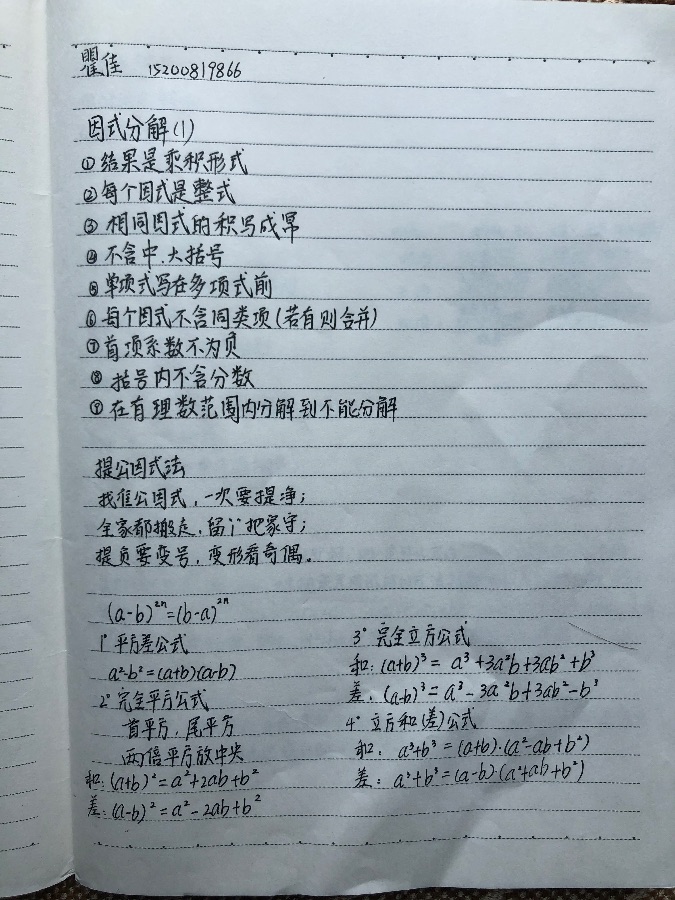 瞿佳 15200819866
因式分解(1)
①结果是乘积形式
②每个因式是整式
③相同因式的积写成幂
④不含中.大括号
⑤单项式写在多项式前
⑥每个因式不含同类项(若有则合并)
⑦首项系数不为负
⑧括号内不含分数
⑨在有理数范围内分解到不能分解
提公因式法
找准公因式,一次要提净;
全家都搬走,留"1"把家守;
提负要变号,变形看奇偶。
(a-b)²ⁿ=(b-a)²ⁿ
1°平方差公式
a²-b²=(a+b)(a-b)
2°完全平方公式
首平方,尾平方
两倍平方放中央
和:(a+b)²=a²+2ab+b²
差:(a-b)²=a²-2ab+b²
3°完全立方公式
和:(a+b)³=a³+3a²b+3ab²+b³
差:(a-b)³=a³-3a²b+3ab²-b³
4°立方和(差)公式
和:a³+b³=(a+b)·(a²-ab+b²)
差:a³+b³=(a-b)·(a²+ab+b²)